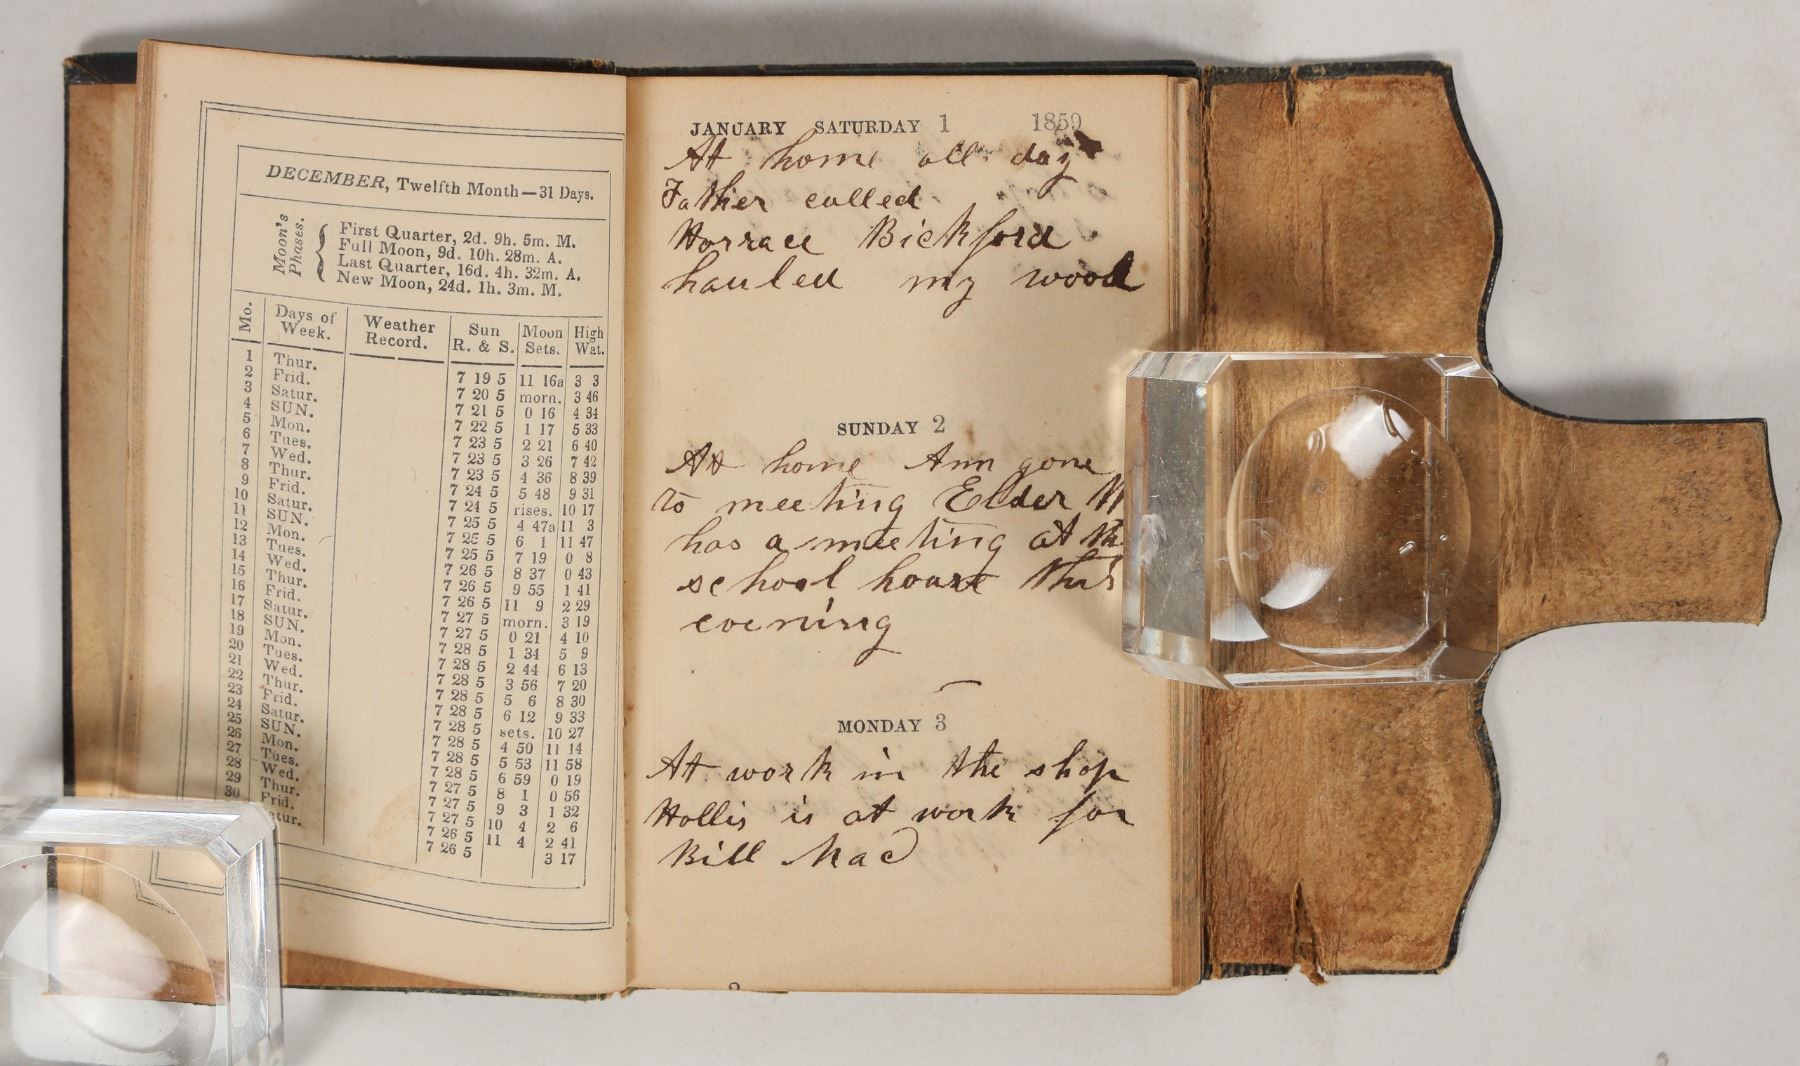 DECEMBER, Twelfth Month—31 Days.
Moon's Phases.
First Quarter, 2d. 9h. 5m. M.
Full Moon, 9d. 10h. 28m. A.
Last Quarter, 16d. 4h. 32m. A.
New Moon, 24d. 1h. 3m. M.
Mo. Days of Week. Weather Record. Sun R. & S. Moon Sets. High Wat.
1 Thur. 7 19 5 11 16a 3 3
2 Frid. 7 20 5 morn. 3 46
3 Satur. 7 21 5 0 16 4 34
4 SUN. 7 22 5 1 17 5 33
5 Mon. 7 23 5 2 21 6 40
6 Tues. 7 23 5 3 26 7 42
7 Wed. 7 23 5 4 36 8 39
8 Thur. 7 24 5 5 48 9 31
9 Frid. 7 24 5 rises. 10 17
10 Satur. 7 25 5 4 47a 11 3
11 SUN. 7 25 5 6 1 11 47
12 Mon. 7 25 5 7 19 0 8
13 Tues. 7 26 5 8 37 0 43
14 Wed. 7 26 5 9 55 1 41
15 Thur. 7 26 5 11 9 2 29
16 Frid. 7 27 5 morn. 3 19
17 Satur. 7 27 5 0 21 4 10
18 SUN. 7 28 5 1 34 5 9
19 Mon. 7 28 5 2 44 6 13
20 Tues. 7 28 5 3 56 7 20
21 Wed. 7 28 5 5 6 8 30
22 Thur. 7 28 5 6 12 9 33
23 Frid. 7 28 5 sets. 10 27
24 Satur. 7 28 5 4 50 11 14
25 SUN. 7 28 5 5 53 11 58
26 Mon. 7 28 5 6 59 0 19
27 Tues. 7 27 5 8 1 0 56
28 Wed. 7 27 5 9 3 1 32
29 Thur. 7 27 5 10 4 2 6
30 Frid. 7 26 5 11 4 2 41
atur. 7 26 5 3 17
JANUARY SATURDAY 1 1859
At home all day
Father called
Horrace Bickford
hauled my wood
SUNDAY 2
At home Ann gone
to meeting Elder M
has a meeting at th
school house this
evening
MONDAY 3
At work in the shop
Hollis is at work for
Bill Mac